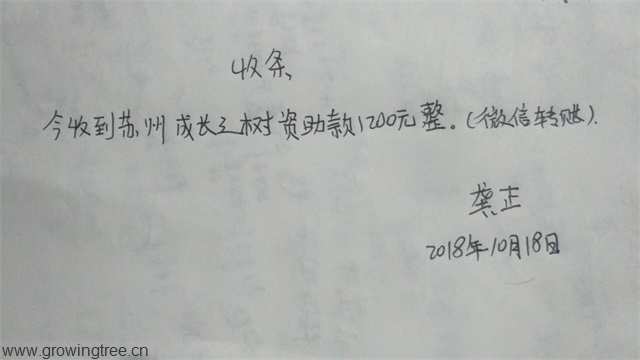 收条
今收到苏州成长之树资助款1200元整。(微信转账).
龚正
2018年10月18日
www.growingtree.cn